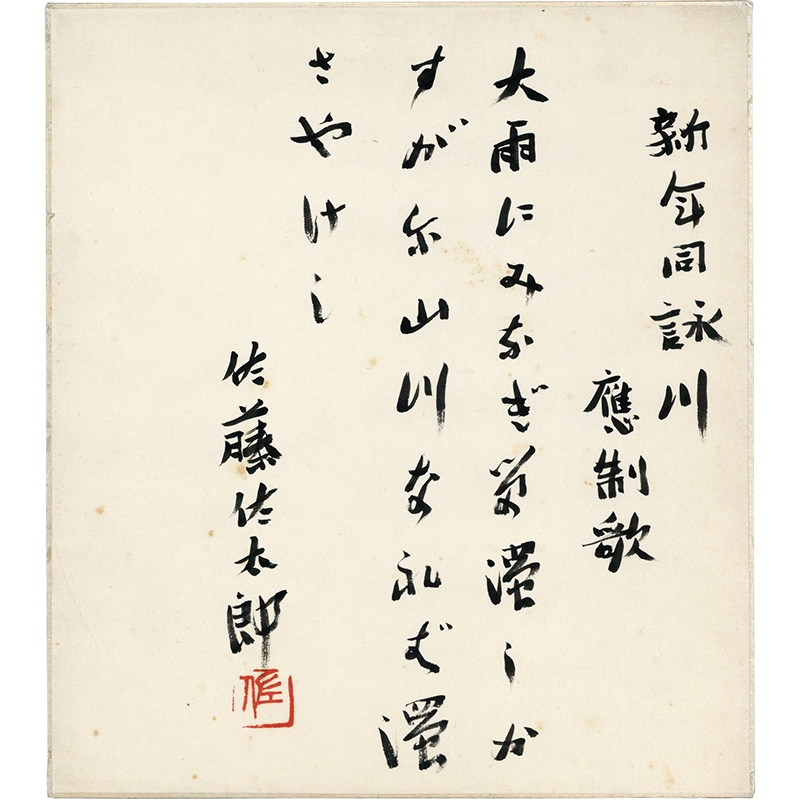 新年同詠川
應制歌
大雨にみなぎる濁しか
すが尓山川なれば濁
さやけし
佐藤佐太郎
佐